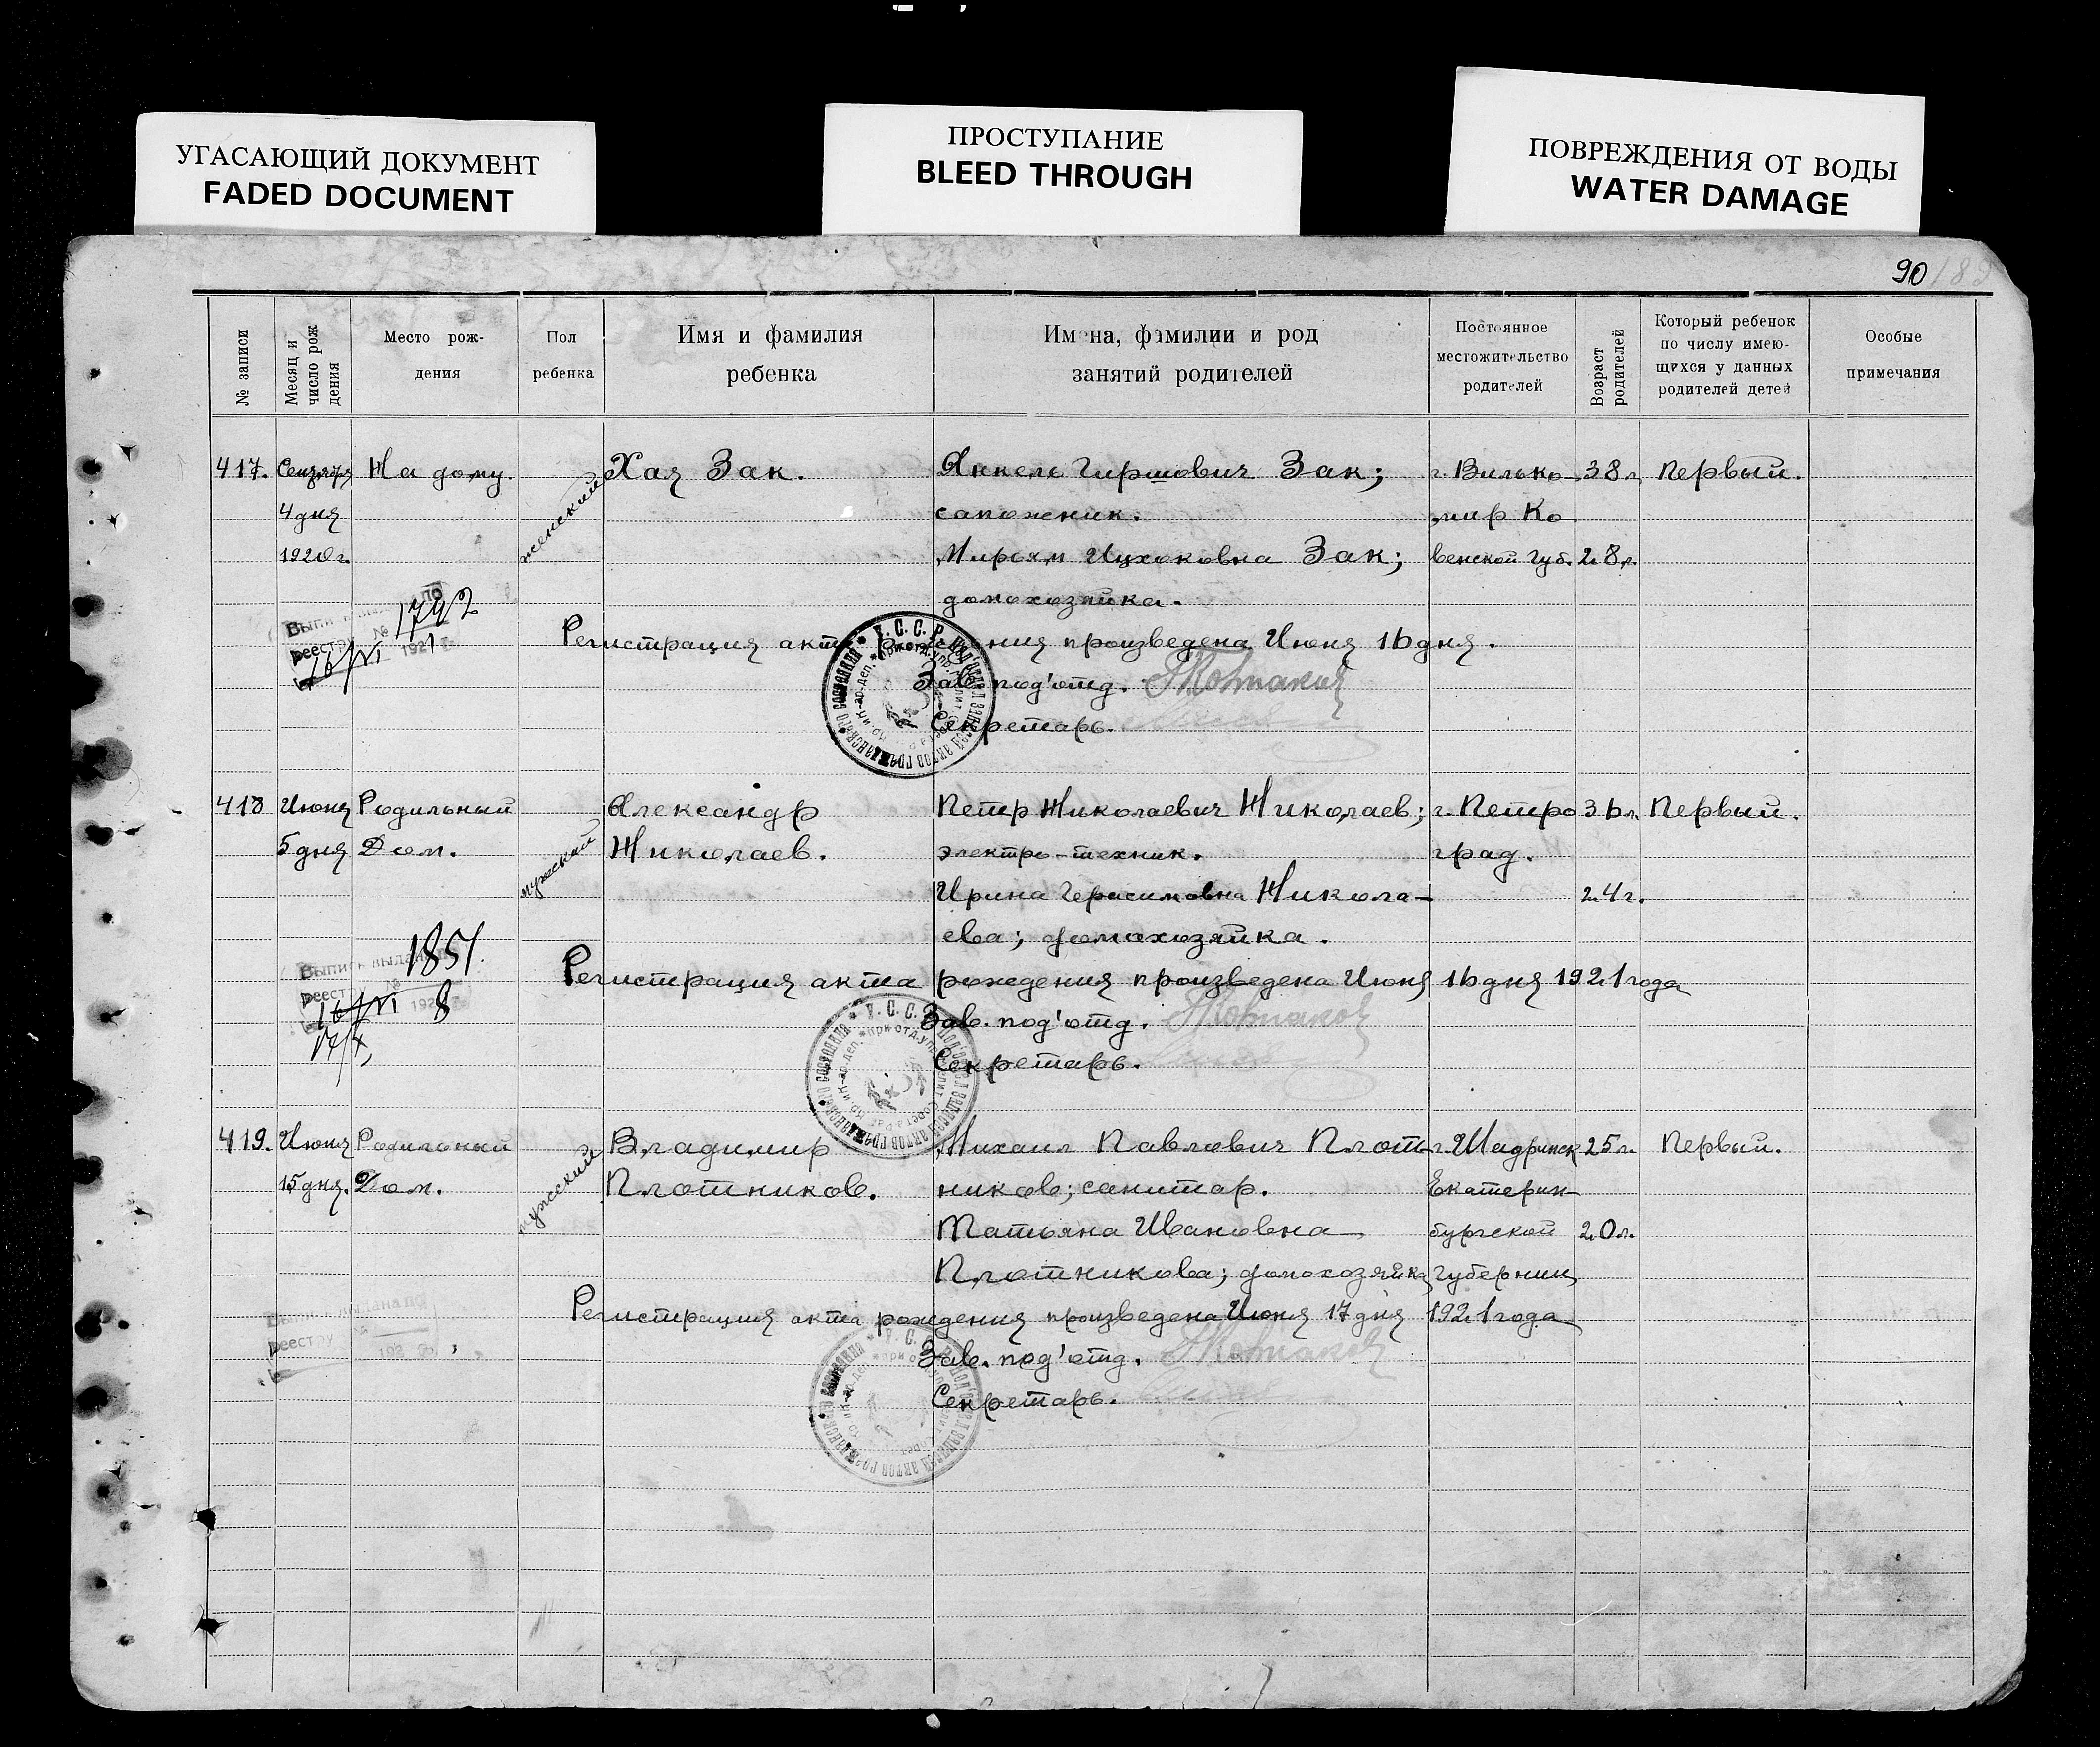 УГАСАЮЩИЙ ДОКУМЕНТ
FADED DOCUMENT
ПРОСТУПАНИЕ
BLEED THROUGH
ПОВРЕЖДЕНИЯ ОТ ВОДЫ
WATER DAMAGE
90
№ записи
Месяц и число рождения
Место рож-
дения
Пол
ребенка
Имя и фамилия
ребенка
Имена, фамилии и род
занятий родителей
Постоянное
местожительство
родителей
Возраст
родителей
Который ребенок
по числу имею-
щихся у данных
родителей детей
Особые
примечания
417. Сентября На дому. женский Хая Зак. Янкель Гиршович Зак; г. Вилько- 38 л. Первый.
4 дня сапожник. мир Ко
1920 г. Мирьям Ицховна Зак; венской Губ. 28 л.
домохозяйка.
Регистрация акта рождения произведена Июня 16 дня.
Зав. под'отд.
Секретарь.
реестру № 1792
16/VI 1921 г.
418 Июня Родильный мужской Александр Петр Николаевич Николаев; г. Петро 36 л. Первый.
5 дня Дом. Николаев. электро-техник. град.
Ирина Герасимовна Никола- 24 г.
ева; домохозяйка.
Регистрация акта рождения произведена Июня 16 дня 1921 года
Зав. под'отд.
Секретарь.
Выпись выдана
реестру № 1851.
16/VI 192 г.
419. Июня Родильный мужской Владимир Михаил Павлович Плот- г. Шадринск 25 л. Первый.
15 дня. Дом. Плотников. ников; санитар. Екатерин-
Татьяна Ивановна бургской 20 л.
Плотникова; домохозяйка Губернии
Регистрация акта рождения произведена Июня 17 дня 1921 года
Зав. под'отд.
Секретарь.
выдана по
реестру №
192 г.